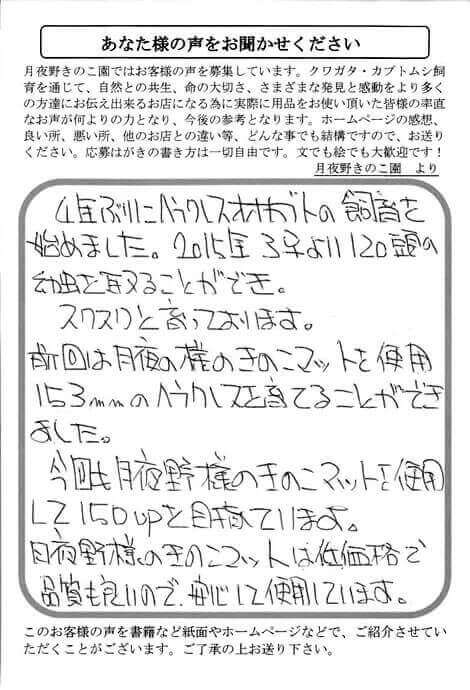 あなた様の声をお聞かせください
月夜野きのこ園ではお客様の声を募集しています。クワガタ・カブトムシ飼
育を通じて、自然との共生、命の大切さ、さまざまな発見と感動をより多く
の方達にお伝え出来るお店になる為に実際に用品をお使い頂いた皆様の率直
なお声が何よりの力となり、今後の参考となります。ホームページの感想、
良い所、悪い所、他のお店との違い等、どんな事でも結構ですので、お送り
ください。応募はがきの書き方は一切自由です。文でも絵でも大歓迎です！
月夜野きのこ園　より
4年ぶりにヘラクレスオオカブトの飼育を
始めました。2015年3月より120頭の
幼虫を取ることができ。
スクスクと育っております。
前回は月夜の様のきのこマットを使用
153mmのヘラクレスを育てることができ
ました。
今回も月夜野様のきのこマットを使用
して150upを目指しています。
月夜野様のきのこマットは低価格で
品質も良いので、安心して使用しています。
このお客様の声を書籍など紙面やホームページなどで、ご紹介させてい
ただくことがございます。ご了承の上お送り下さい。